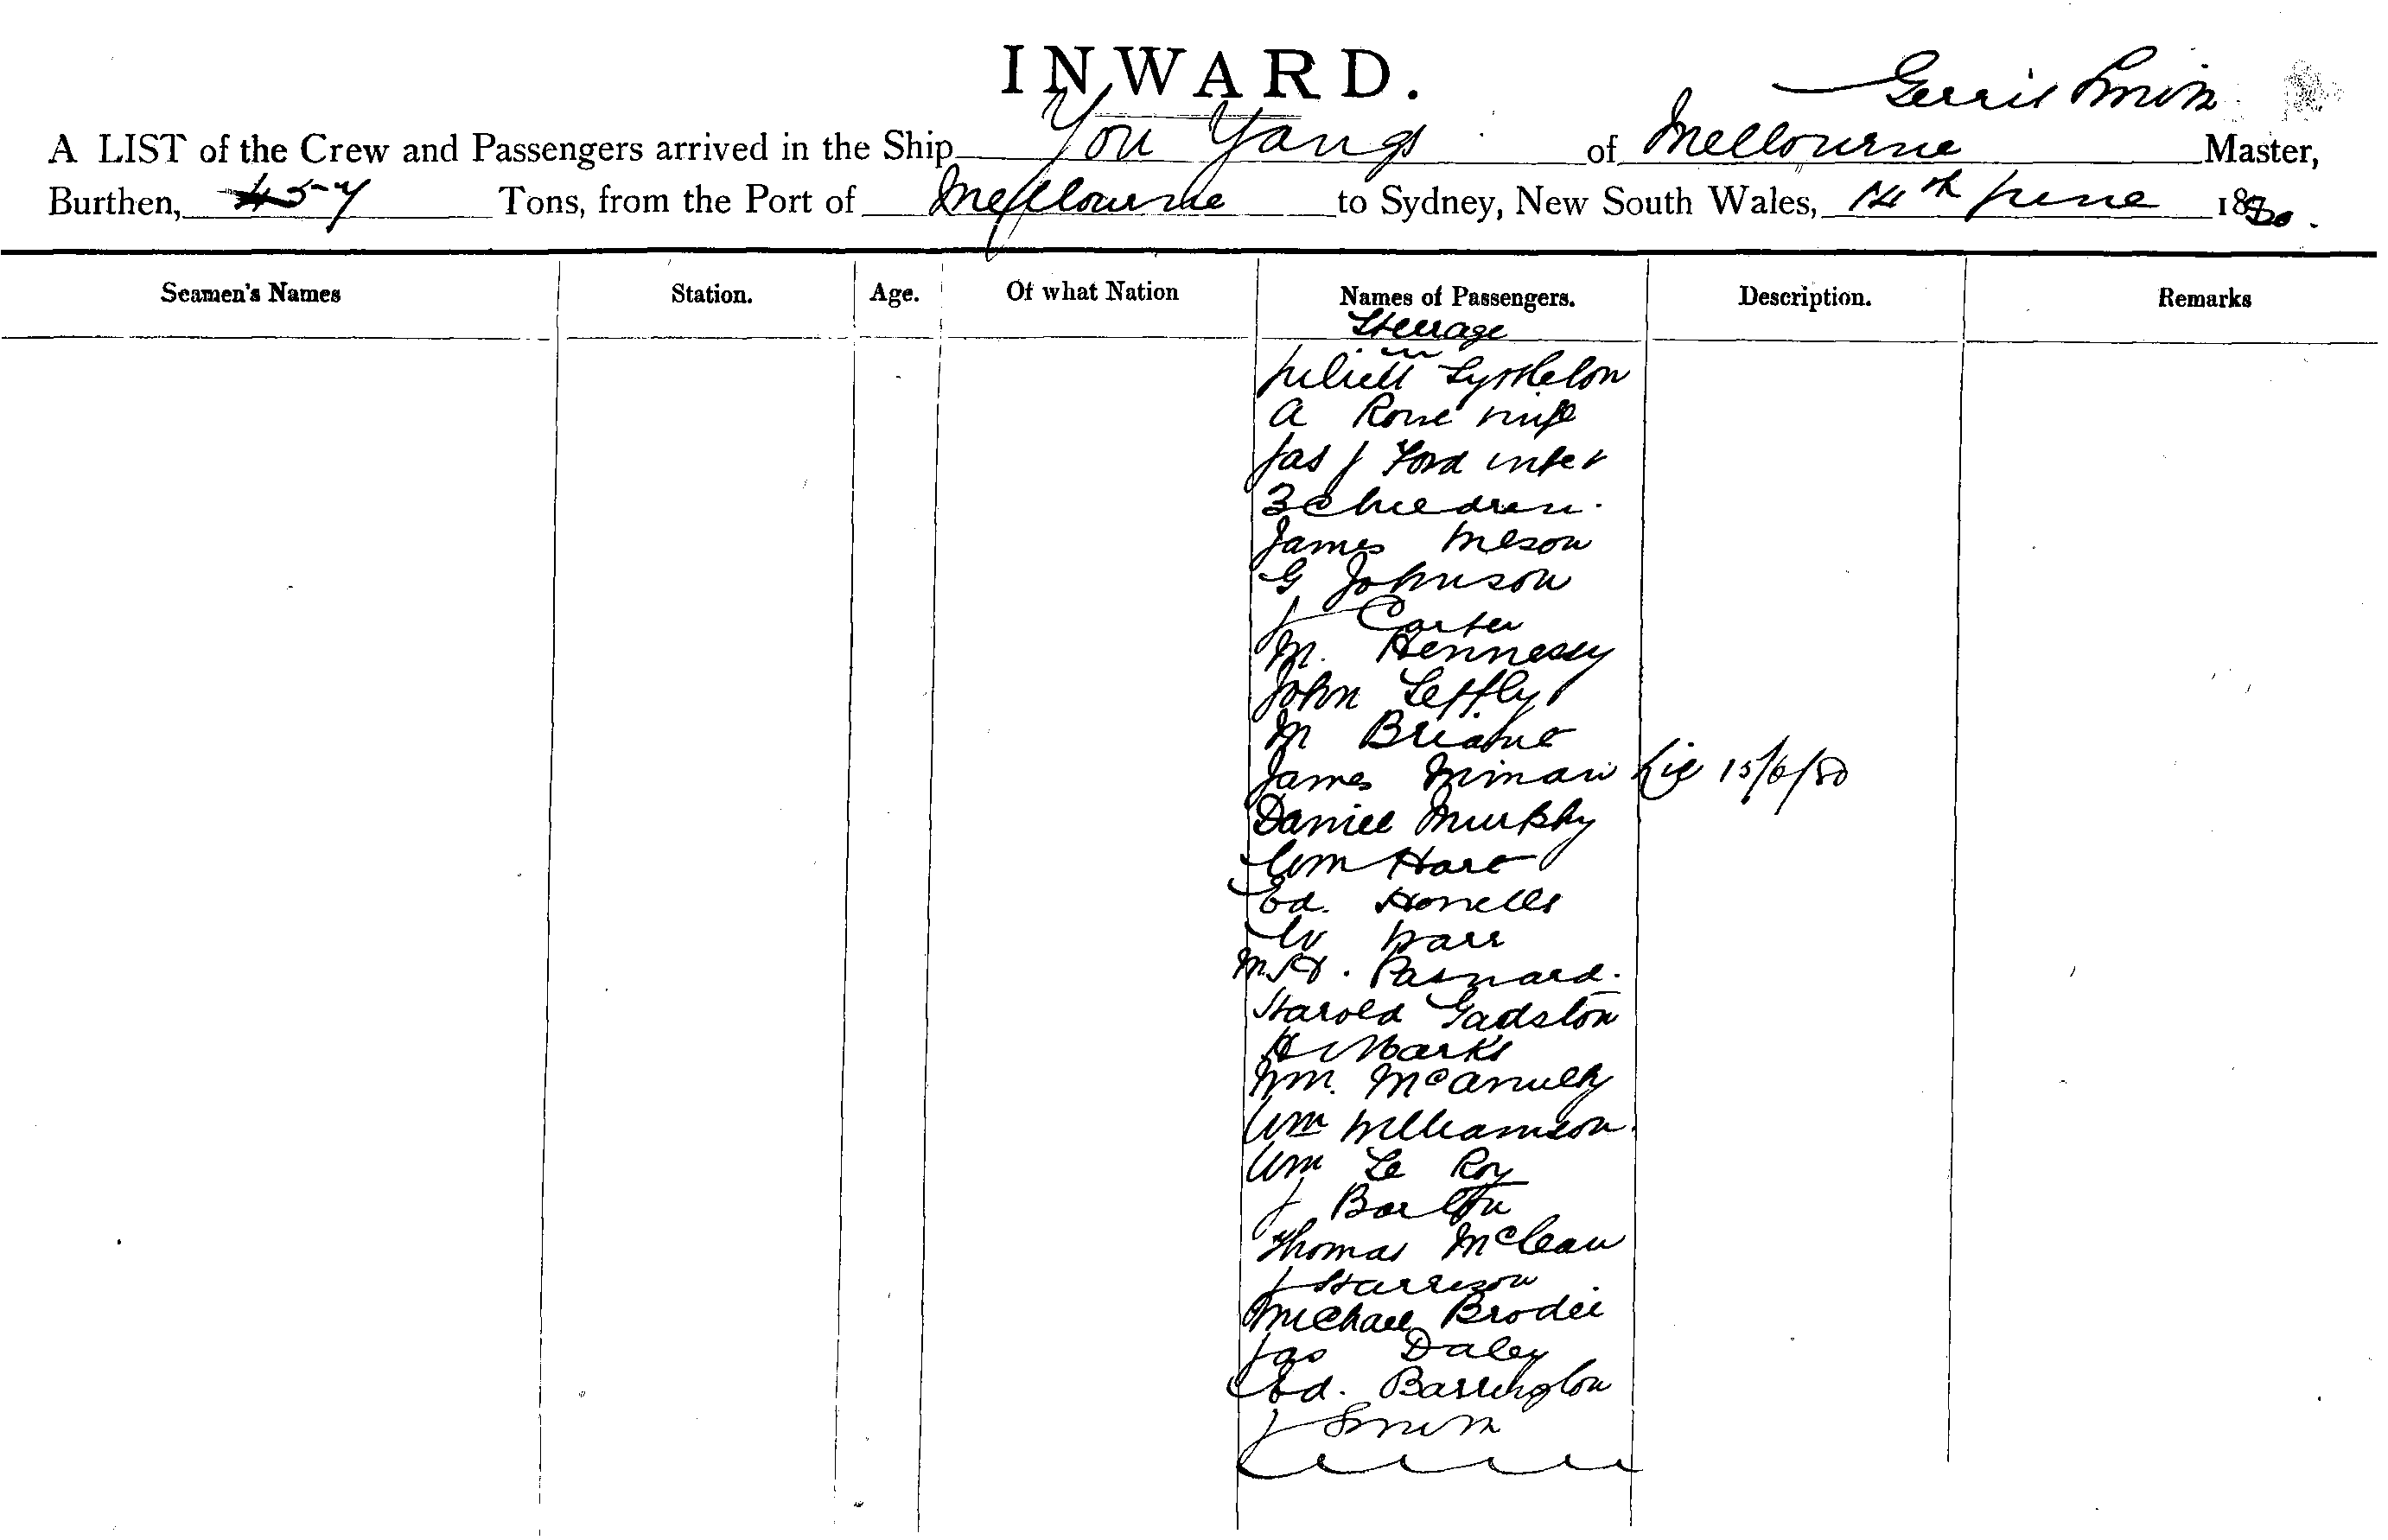 INWARD.
Gerrit Smith
A LIST of the Crew and Passengers arrived in the Ship You Yangs of Melbourne Master,
Burthen, 457 Tons, from the Port of Melbourne to Sydney, New South Wales, 14th June 1880.
Seamen's Names Station. Age. Of what Nation Names of Passengers. Description. Remarks
Steerage
Lyttleton
A Rowe wife
Jas J Ford wife &
3 children.
James Wilson
G Johnson
J Carter
M. Hennessy
John Leffly
M
James
Daniel Murphy
Wm Hart
Ed. Howells
W Warr
M. H.
Harold Gadston
H Marks
Wm. McAnulty
Wm Williamson.
Wm Le Roy
J Barlow
Thomas McLean
J Harrison
Michael Brodie
Jas Daley
Ed. Barrington
J Smith
15/6/80